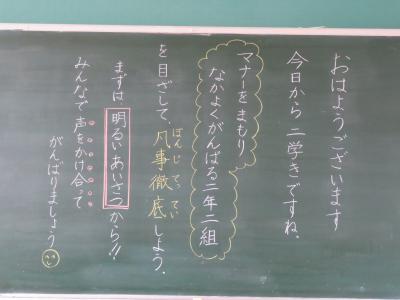 おはようございます
今日から 二学きですね。
マナーを まもり
なかよくがんばる二年二組
を 目ざして、凡事徹底しよう。
ぼんじ てってい
まずは、明るい あいさつ から!!
みんなで 声をかけ合って
がんばりましょう